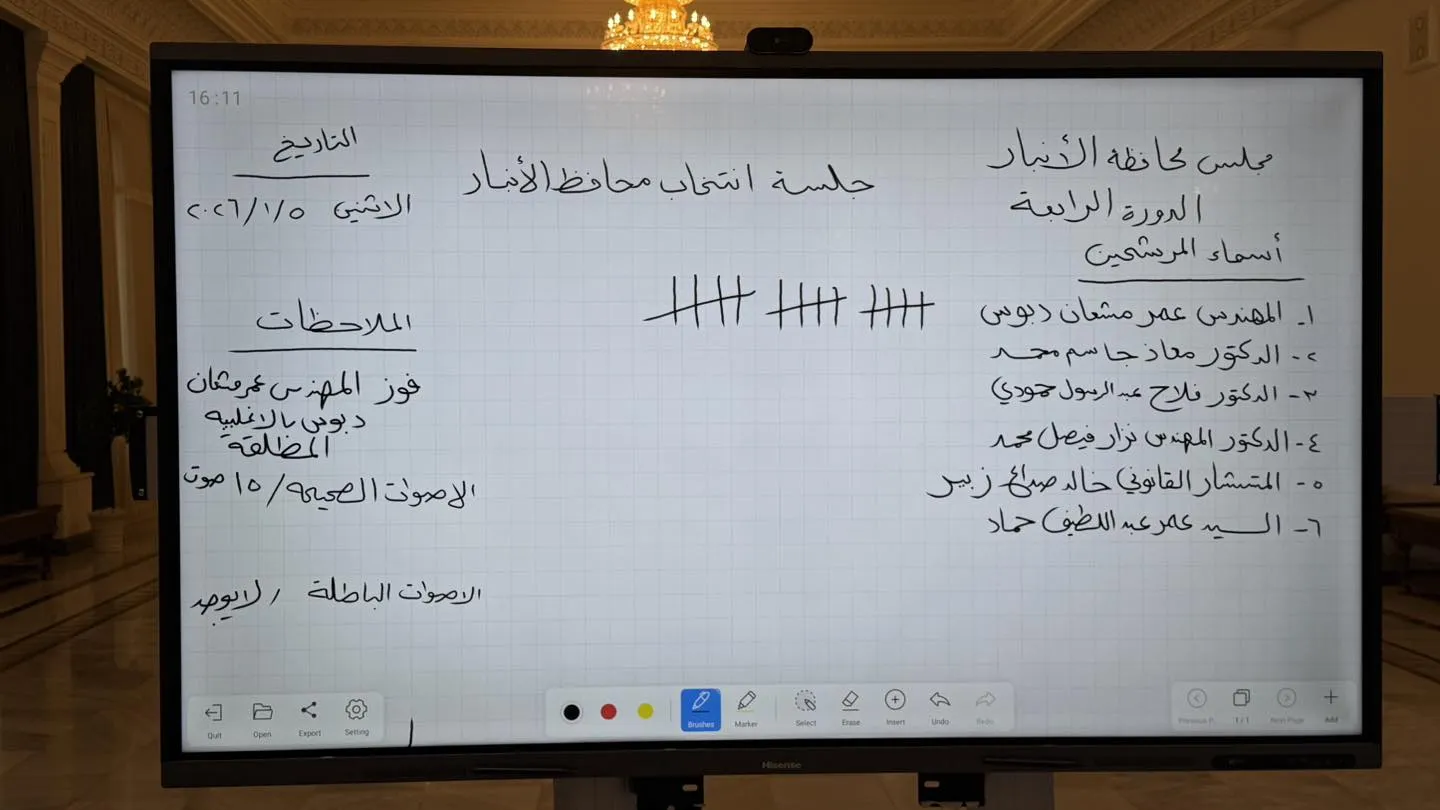 16:11
مجلس محافظة الأنبار
الدورة الرابعة
جلسة انتخاب محافظ الأنبار
التاريخ
الاثنين ٢٠٢٦/١/٥
أسماء المرشحين
١- المهندس عمر مشعان دبوس
٢- الدكتور معاذ جاسم محمد
٣- الدكتور فلاح عبد الرسول حمودي
٤- الدكتور المهندس نزار فيصل محمد
٥- المستشار القانوني خالد صالح زبير
٦- السيد عمر عبد اللطيف حماد
الملاحظات
فوز المهندس عمر مشعان
دبوس بالاغلبيه
المطلقة
الاصوات الصحيحه / ١٥ صوت
الاصوات الباطلة / لا يوجد
Quit
Open
Export
Setting
Brushes
Marker
Select
Erase
Insert
Undo
Redo
Previous P..
1/1
Next Page
Add
Hisense